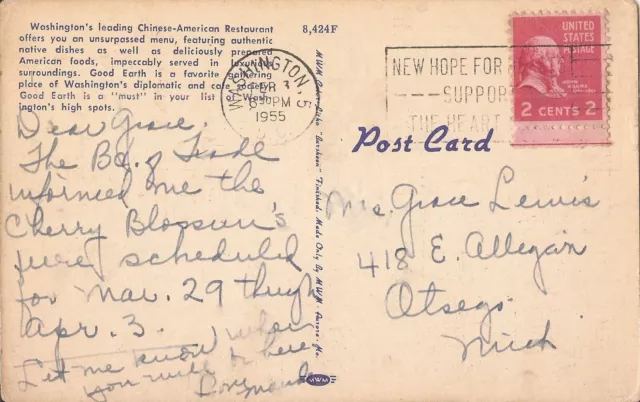 Washington's leading Chinese-American Restaurant
offers you an unsurpassed menu, featuring authentic
native dishes as well as deliciously prepared
American foods, impeccably served in luxurious
surroundings. Good Earth is a favorite gathering
place of Washington's diplomatic and cafe society.
Good Earth is a "must" in your list of Wash-
ington's high spots.
8,424F
WASHINGTON 5
3
8 30 PM
1955
NEW HOPE FOR
SUPPORT
THE HEART
UNITED
STATES
POSTAGE
JOHN ADAMS
2 CENTS 2
Post Card
Dear Grace.
The Bd. of Trade
informed me the
Cherry Blossum's
were scheduled
for Mar. 29 through
Apr. 3.
Let me know when
you will be here
Love
Mrs. Grace Lewis
418 E. Allegan
Otsego,
Mich.
"Finished. Made Only By MWM - Aurora - Mo.
MWM